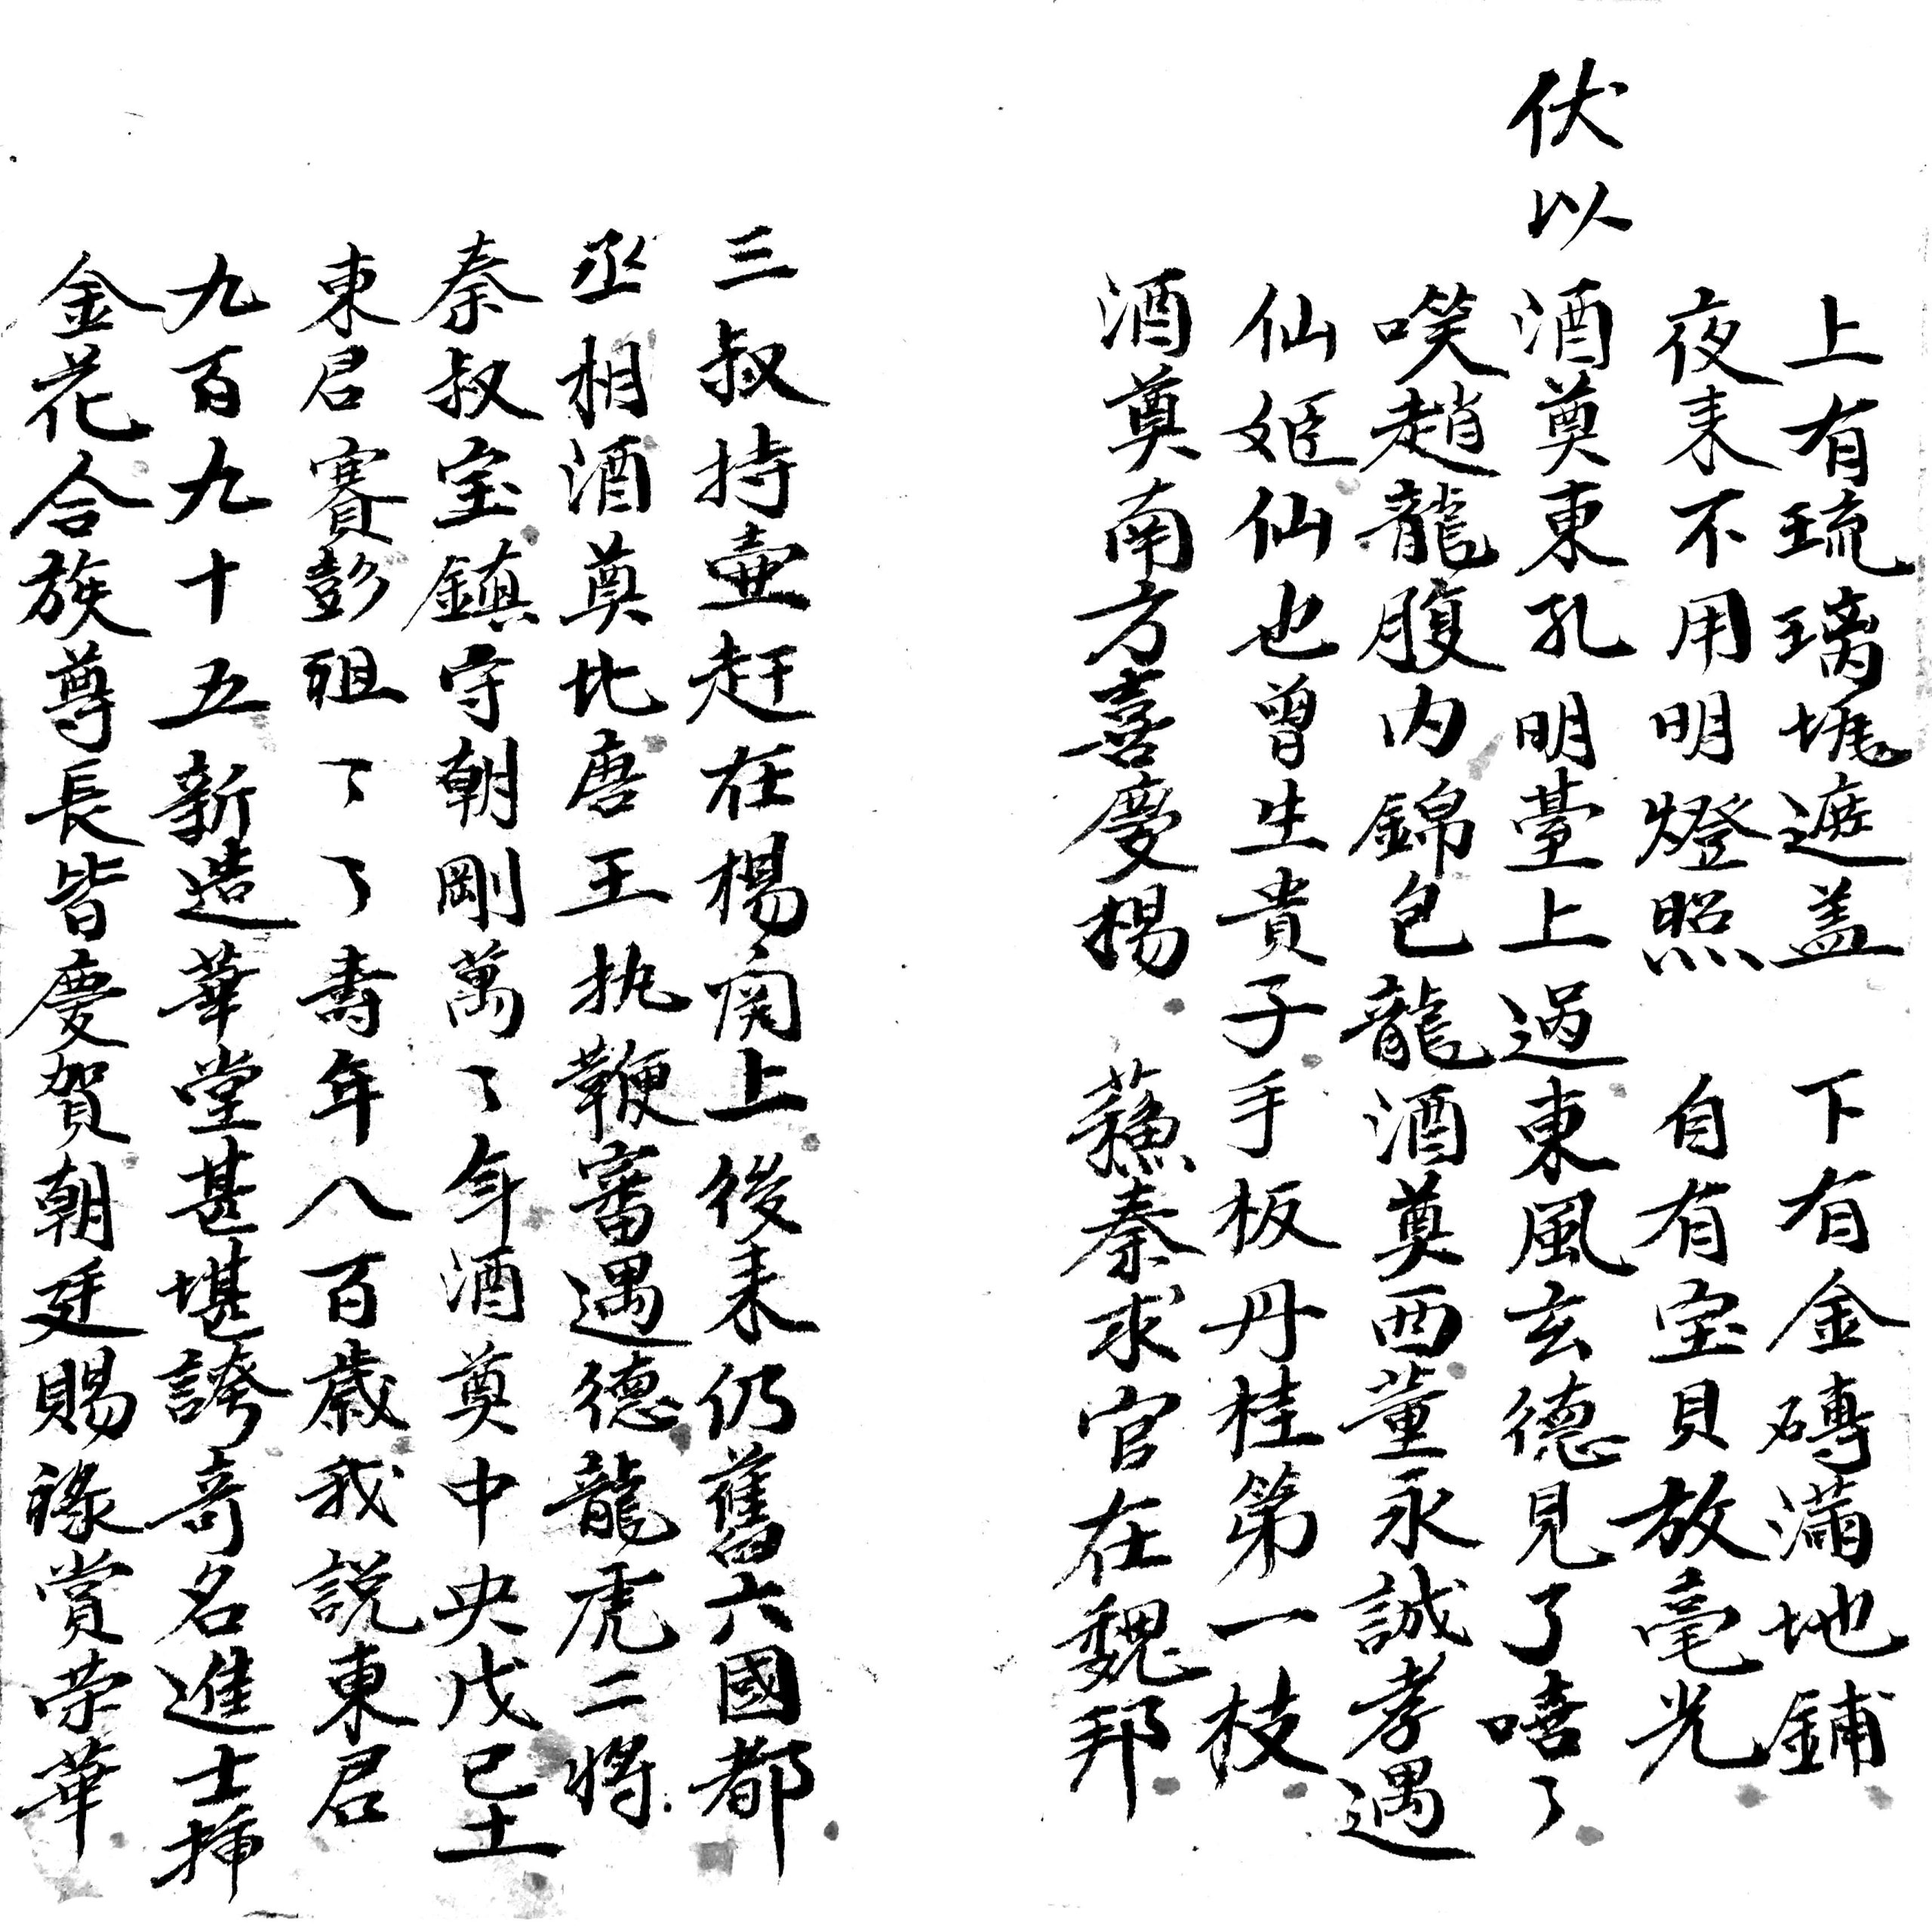 上有琉璃塊遮盖 下有金磚滿地鋪
夜来不用明燈照 自有宝貝放毫光
伏以 酒奠東孔明臺上過東風玄德見了嘻了
𠸄趙龍腹内錦包龍酒奠西董永誠孝遇
仙姬仙也曾生貴子手板丹桂第一枝
酒奠南方喜慶楊 蘓秦求官在魏邦
三叔持壷赶在楊関上後来仍舊六國都
丞相酒奠北唐王执鞭審遇德龍虎二將
秦叔宝鎮守朝剛萬〻年酒奠中央戊己土
東君賽彭祖了了壽年八百歲我説東君
九百九十五新造華堂甚堪誇奇名進士揷
金花合族尊長皆慶賀朝廷賜祿賞荣華